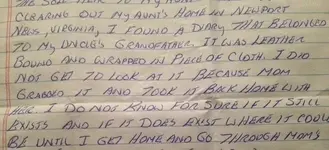 CLEARING OUT MY AUNT'S HOME IN NEWPORT
NEWS, VIRGINIA, I FOUND A DIARY THAT BELONGED
TO MY UNCLE'S GRANDFATHER. IT WAS LEATHER
BOUND AND WRAPPED IN PIECE OF CLOTH. I DID
NOT GET TO LOOK AT IT BECAUSE MOM
GRABBED IT AND TOOK IT BACK HOME WITH
HER. I DO NOT KNOW FOR SURE IF IT STILL
EXISTS AND IF IT DOES EXIST WHERE IT COULD
BE UNTIL I GET HOME AND GO THROUGH MOM'S